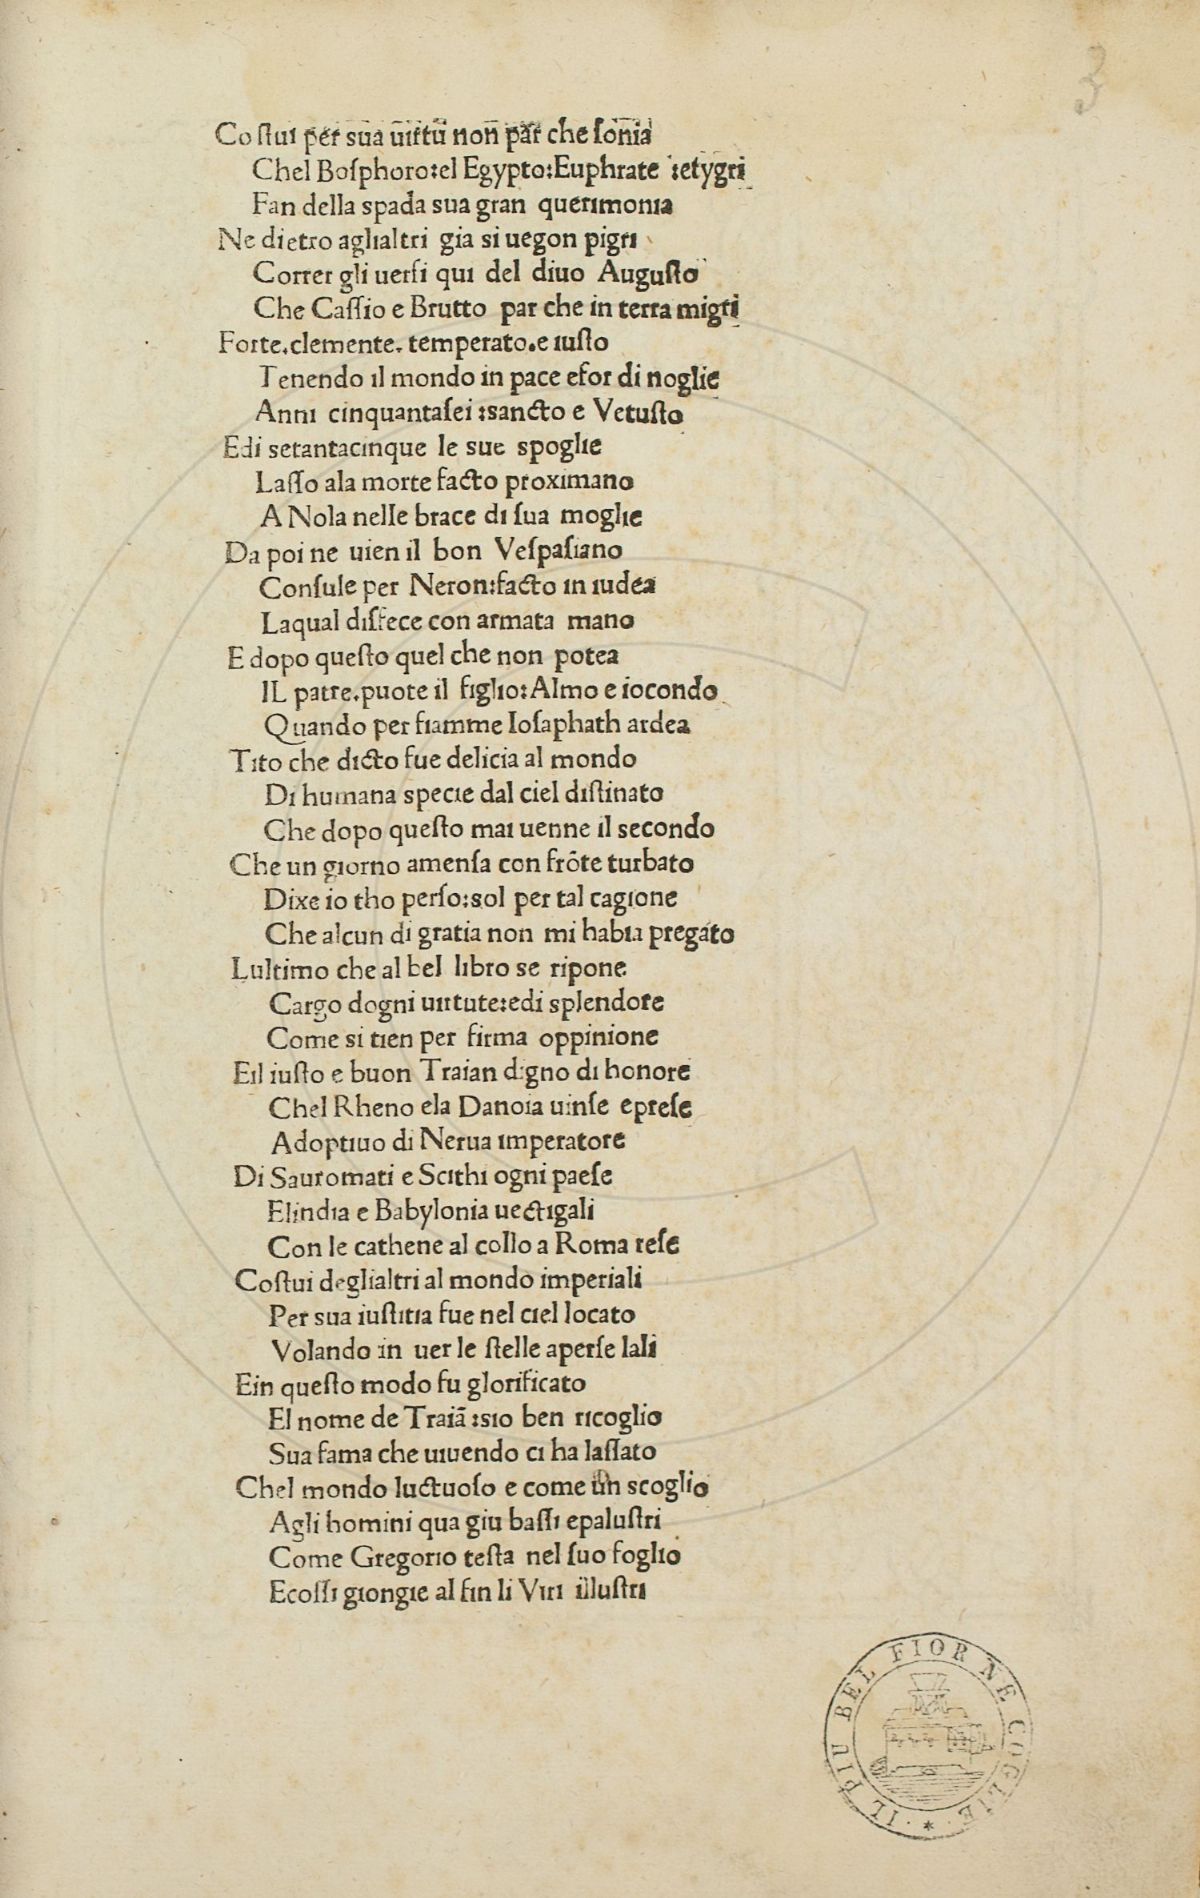 3
Costui per sua uirtu non par che sonia
Chel Bosphoro:el Egypto:Euphrate :etygri
Fan della spada sua gran querimonia
Ne dietro aglialtri gia si uegon pigri
Correr gli uersi qui del diuo Augusto
Che Cassio e Brutto par che in terra migri
Forte.clemente. temperato.e iusto
Tenendo il mondo in pace efor di noglie
Anni cinquantasei :sancto e Vetusto
Edi setantacinque le sue spoglie
Lasso ala morte facto proximano
A Nola nelle brace di sua moglie
Da poi ne uien il bon Vespasiano
Consule per Neron:facto in iudea
Laqual disfece con armata mano
E dopo questo quel che non potea
IL patre.puote il figlio:Almo e iocondo
Quando per fiamme Iosaphath ardea
Tito che dicto fue delicia al mondo
Di humana specie dal ciel distinato
Che dopo questo mai uenne il secondo
Che un giorno amensa con frōte turbato
Dixe io tho perso:sol per tal cagione
Che alcun di gratia non mi habia pregato
Lultimo che al bel libro se ripone
Cargo dogni uirtute:edi splendore
Come si tien per firma oppinione
Eil iusto e buon Traian digno di honore
Chel Rheno ela Danoia uinse eprese
Adoptiuo di Nerua imperatore
Di Sauromati e Scithi ogni paese
Elindia e Babylonia uectigali
Con le cathene al collo a Roma rese
Costui deglialtri al mondo imperiali
Per sua iustitia fue nel ciel locato
Volando in uer le stelle aperse lali
Ein questo modo fu glorificato
El nome de Traiā :sio ben ricoglio
Sua fama che uiuendo ci ha lassato
Chel mondo luctuoso e come un scoglio
Agli homini qua giu bassi epalustri
Come Gregorio testa nel suo foglio
Ecossi giongie al fin li Viri illustri
IL PIU BEL FIOR NE COGLIE